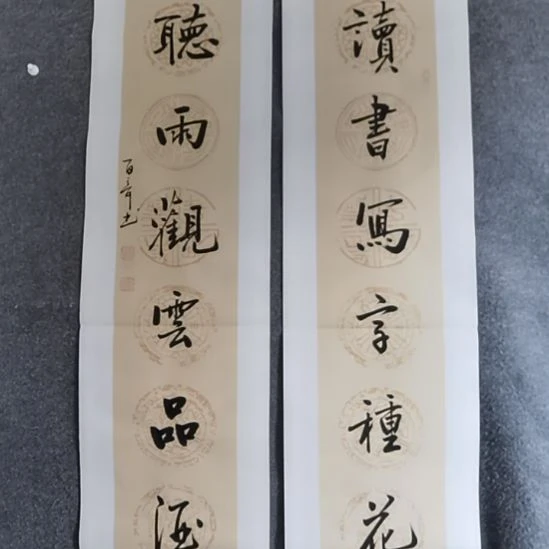 讀書寫字種花
聽雨觀雲品酒